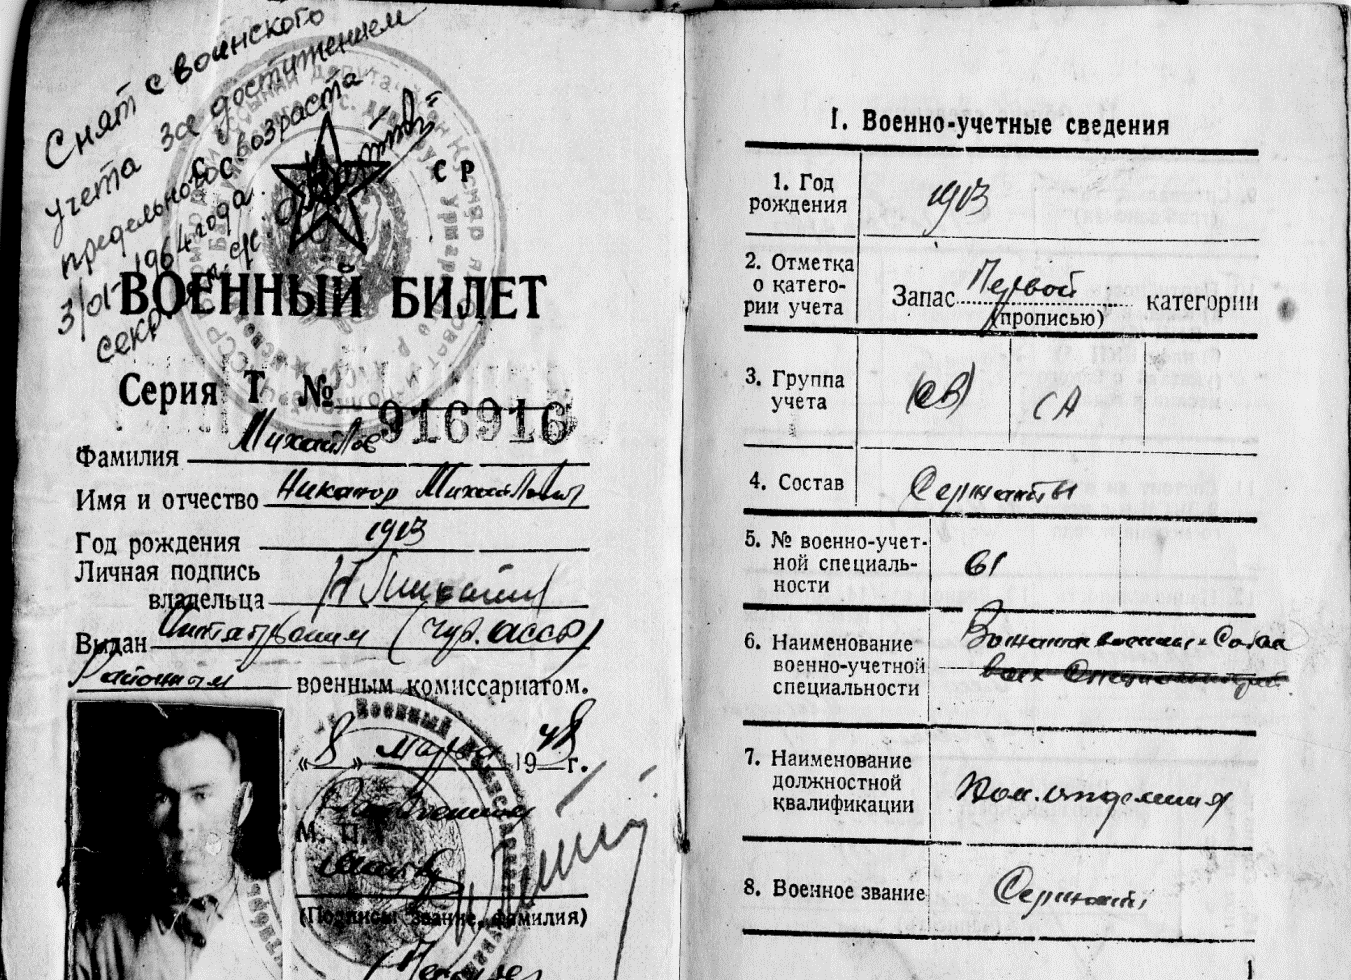 Снят с воинского
учета за достижением
предельного возраста
3/01-1964 года.
секр.
СР
ВОЕННЫЙ БИЛЕТ
Серия Т № 916916
Фамилия Михайлов
Имя и отчество Никанор Михайлович
Год рождения 1913
Личная подпись
владельца
Выдан (Чув. АССР)
Районным военным комиссариатом.
«8» марта 1948 г.
М. П.
(Подпись, звание, фамилия)
I. Военно-учетные сведения
1. Год
рождения
1913
2. Отметка
о катего-
рии учета
Запас Первой категории
(прописью)
3. Группа
учета
СА
4. Состав
Сержанты
5. № военно-учет-
ной специаль-
ности
61
6. Наименование
военно-учетной
специальности
всех специальностей
7. Наименование
должностной
квалификации
Ком. отделения
8. Военное звание
Сержант
1